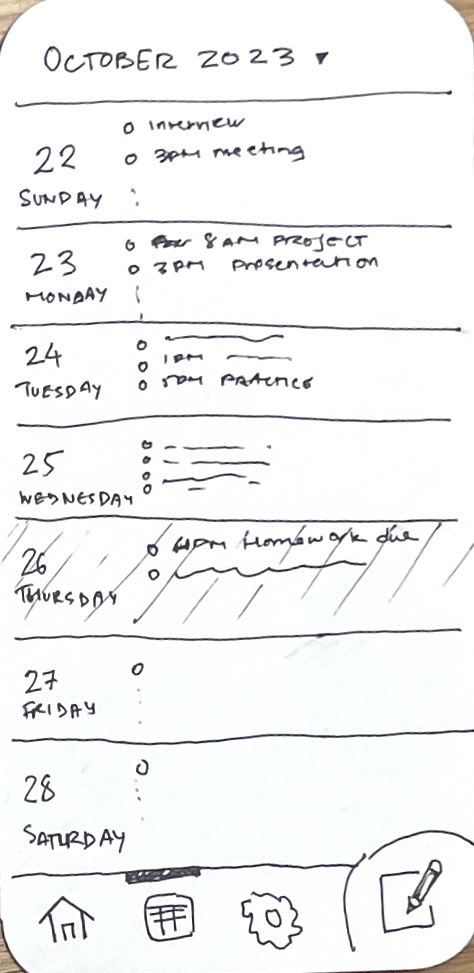 OCTOBER 2023
22
SUNDAY
interview
3PM meeting
23
MONDAY
8 AM PROJECT
3 PM presentation
24
TUESDAY
1PM
5PM PRACTICE
25
WEDNESDAY
26
THURSDAY
Homework due
27
FRIDAY
28
SATURDAY